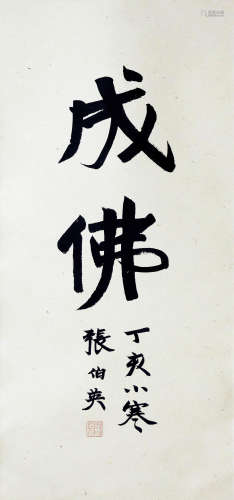 成佛
丁亥小寒
張伯英